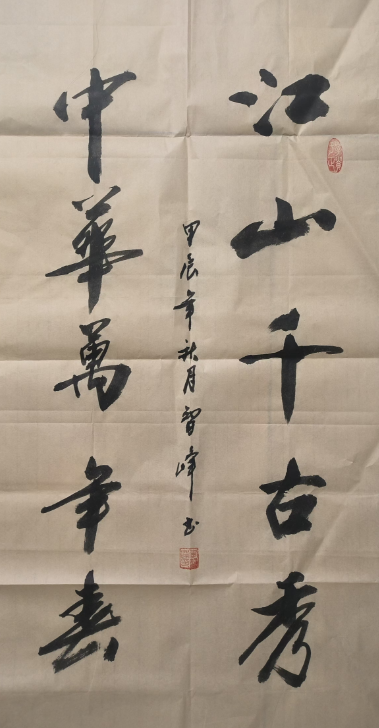 江山千古秀
中華萬年春
甲辰年秋月智峰书